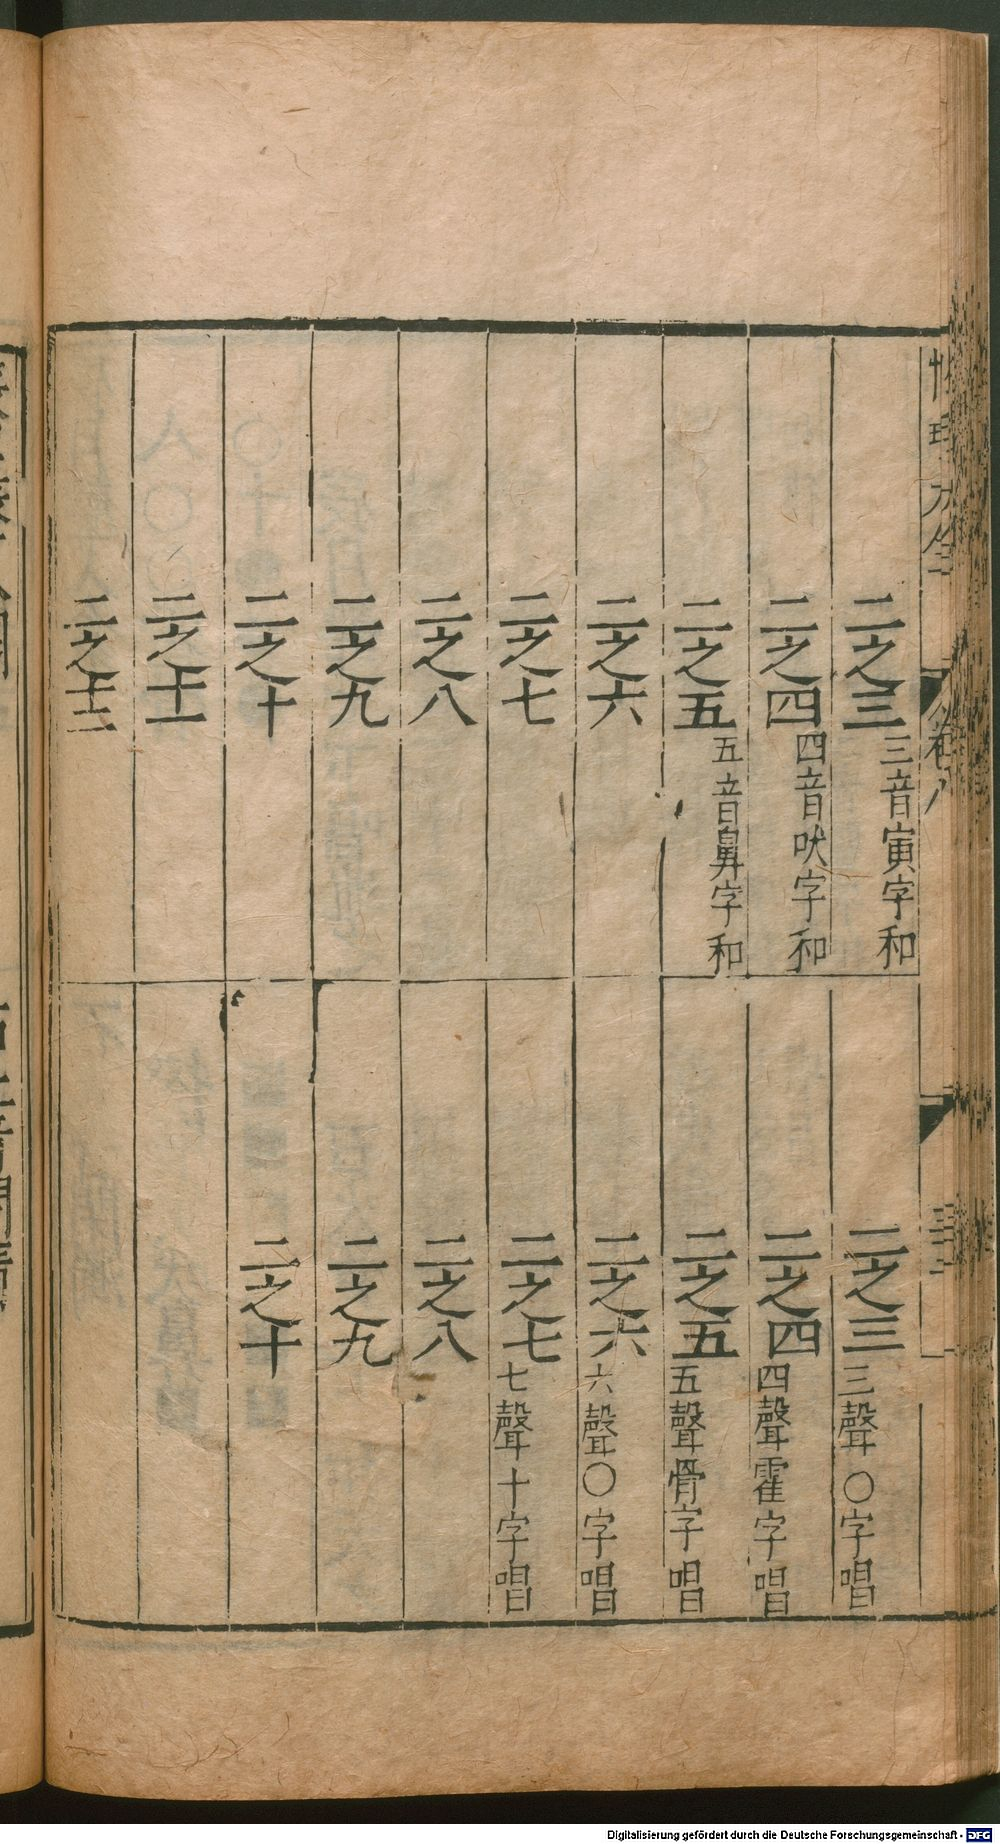 性理大全
卷八
二之三 三音寅字和
二之四 四音吠字和
二之五 五音鼻字和
二之六
二之七
二之八
二之九
二之十
二之十一
二之十二
二之三 三聲〇字唱
二之四 四聲霍字唱
二之五 五聲骨字唱
二之六 六聲〇字唱
二之七 七聲十字唱
二之八
二之九
二之十
Digitalisierung gefördert durch die Deutsche Forschungsgemeinschaft - DFG